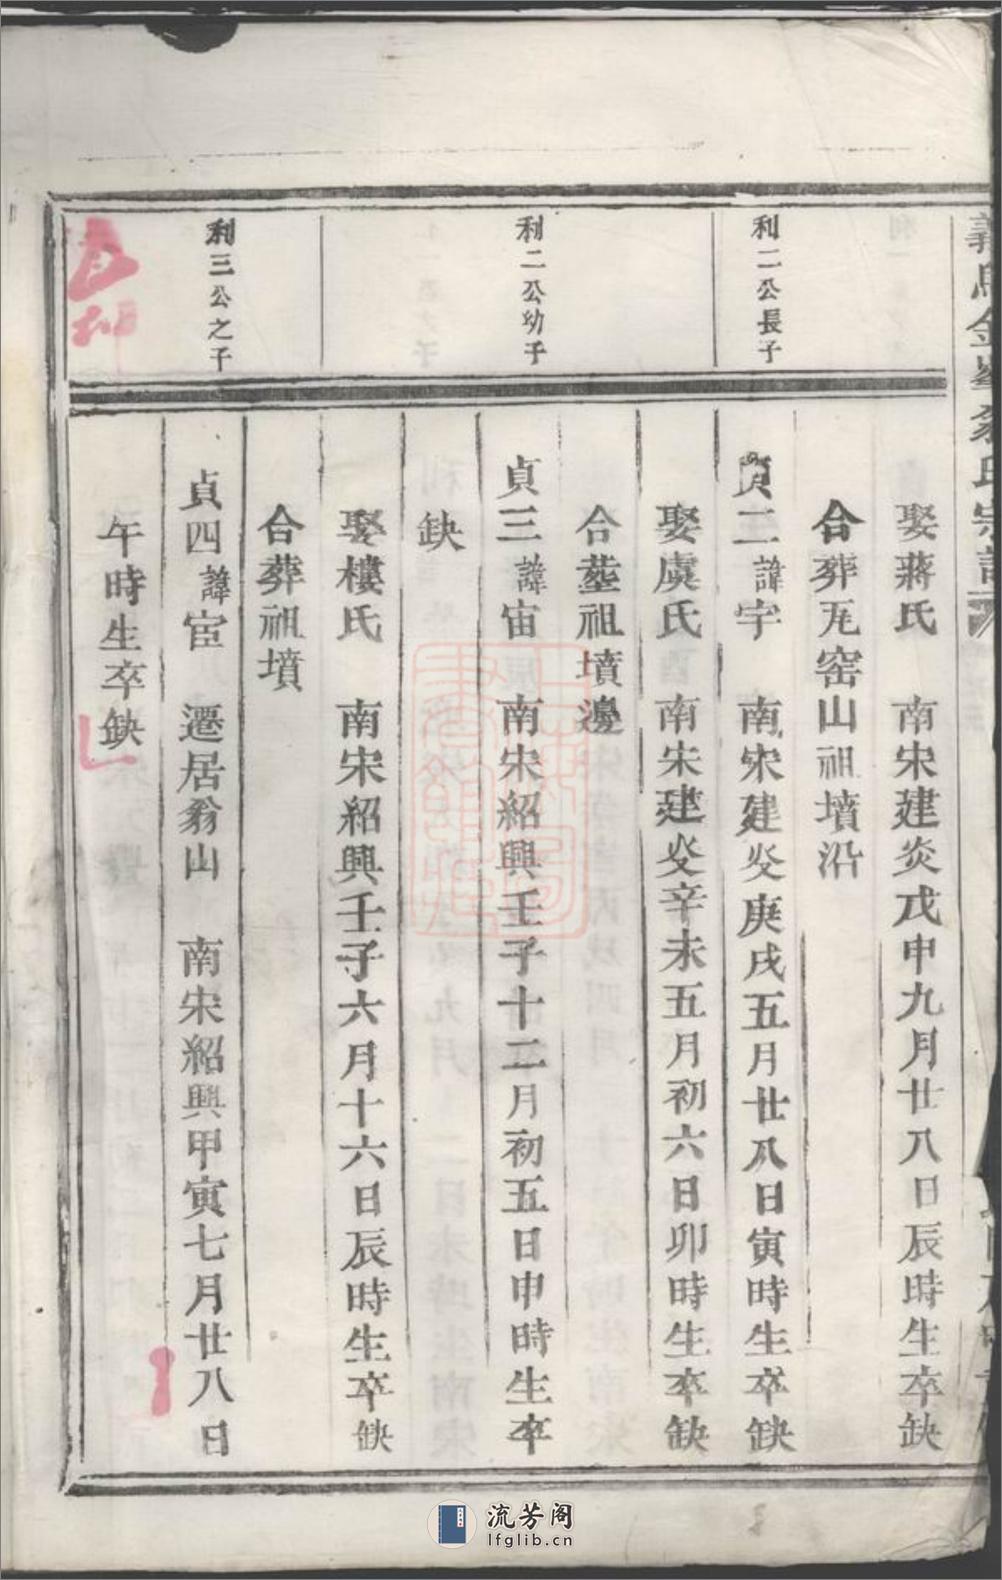 義烏金峯翁氏宗譜
利二公長子
利二公幼子
利三公之子
娶蔣氏　南宋建炎戊申九月廿八日辰時生卒缺
合葬瓦窑山祖墳沿
貞二諱宇　南宋建炎庚戌五月廿八日寅時生卒缺
娶虞氏　南宋建炎辛未五月初六日卯時生卒缺
合塟祖墳邊
貞三諱宙　南宋紹興壬子十二月初五日申時生卒
缺
娶樓氏　南宋紹興壬子六月十六日辰時生卒缺
合葬祖墳
貞四諱宦　遷居翁山　南宋紹興甲寅七月廿八日
午時生卒缺
流芳阁
lfglib.cn